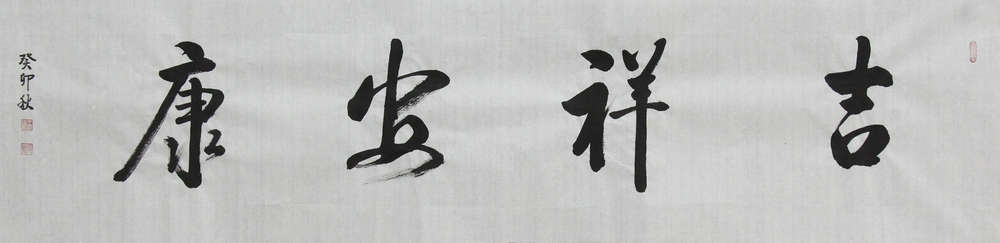 吉祥安康
癸卯秋